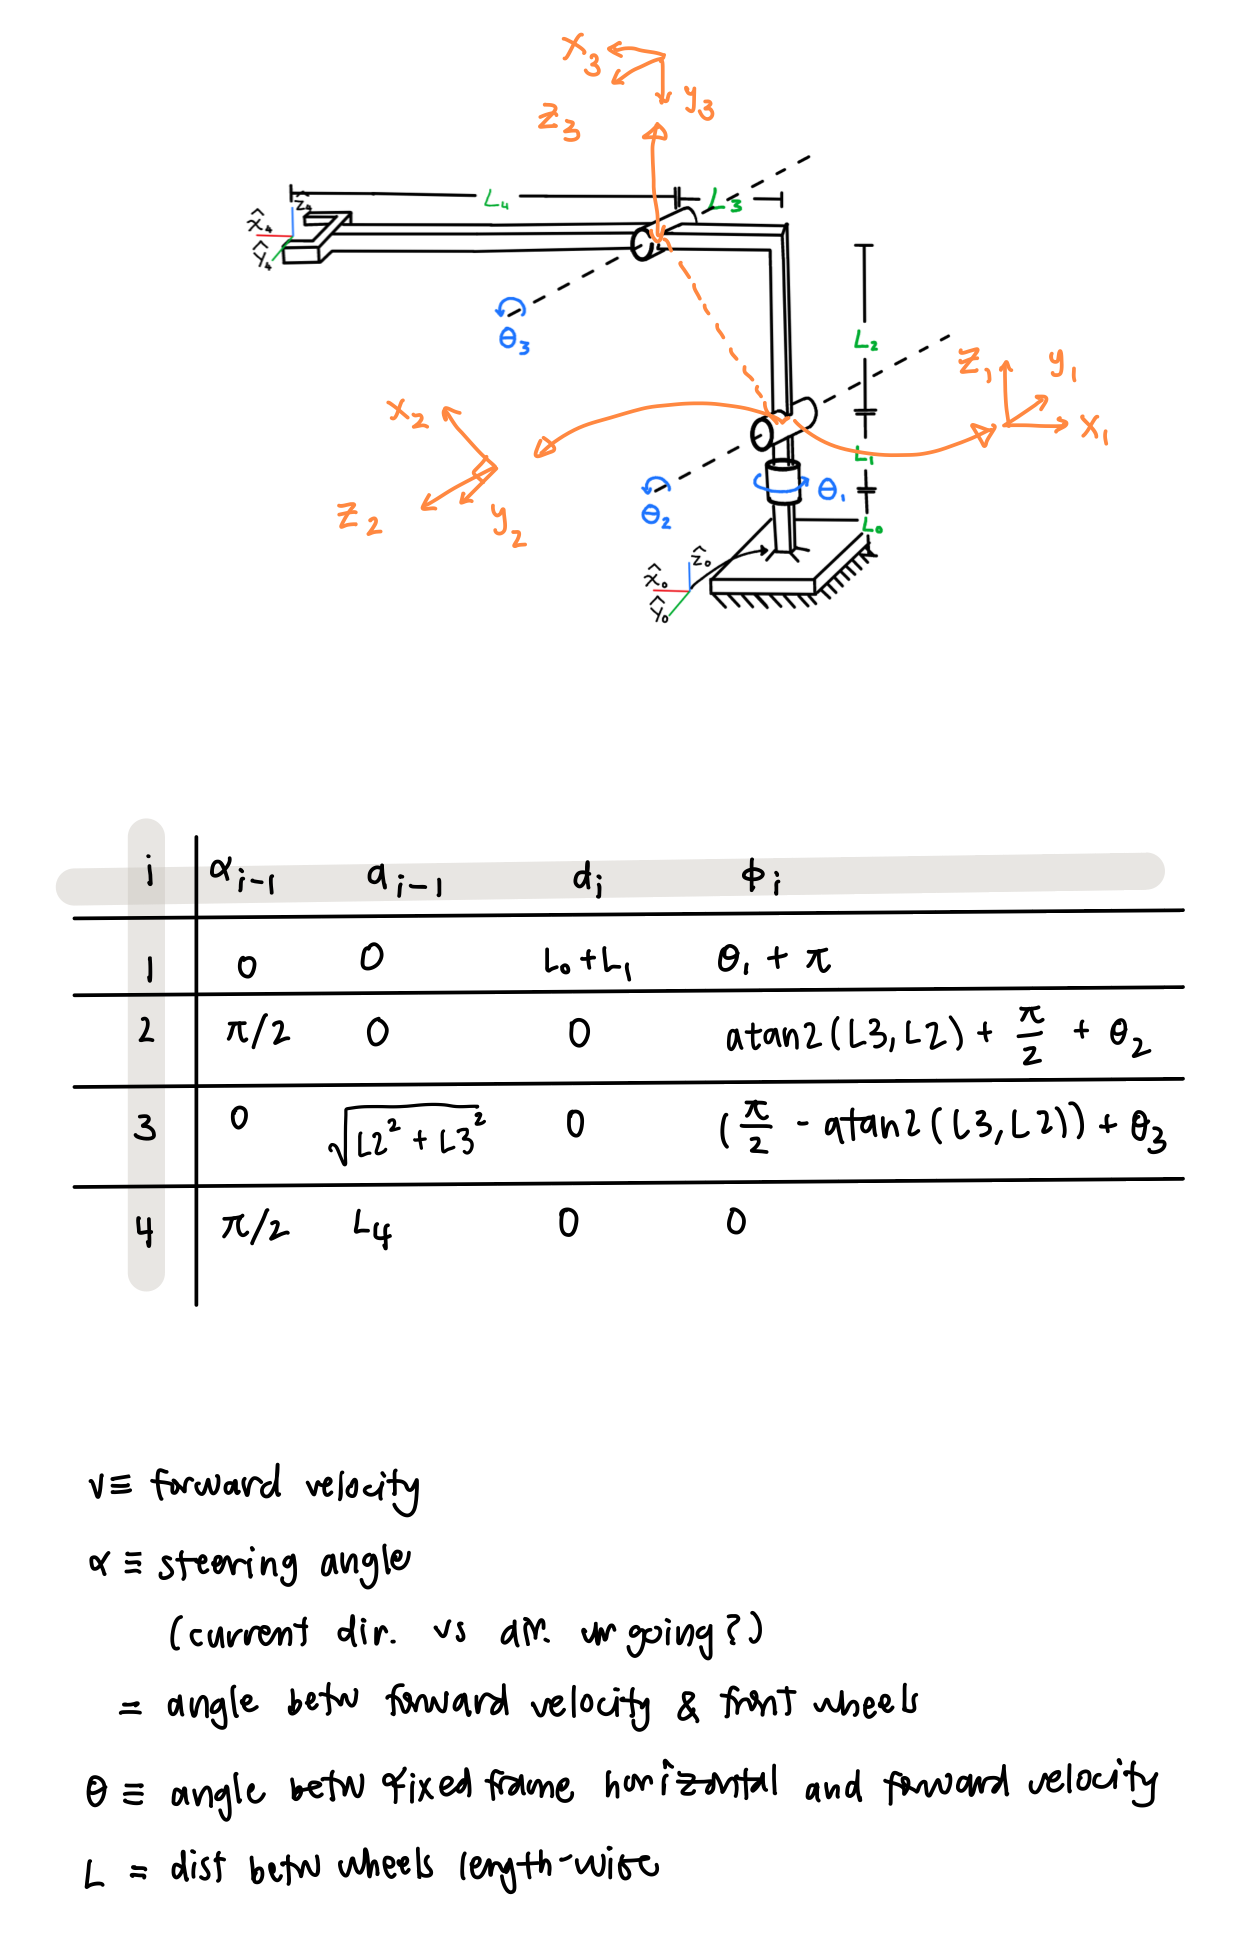 X₃
y₃
z₃
L₄
L₃
ẑ₄
x̂₄
ŷ₄
θ₃
L₂
z₁
y₁
x₁
x₂
L₁
θ₁
z₂
y₂
θ₂
L₀
ẑ₀
x̂₀
ŷ₀
i αᵢ₋₁ aᵢ₋₁ dᵢ ϕᵢ
1 0 0 L₀+L₁ θ₁ + π
2 π/2 0 0 atan2(L3, L2) + π/2 + θ₂
3 0 √(L2² + L3²) 0 (π/2 - atan2(L3, L2)) + θ₃
4 π/2 L₄ 0 0
v≡ forward velocity
α ≡ steering angle
(current dir. vs dir. ur going?)
= angle betw forward velocity & front wheels
θ ≡ angle betw fixed frame horizontal and forward velocity
L = dist betw wheels length-wise